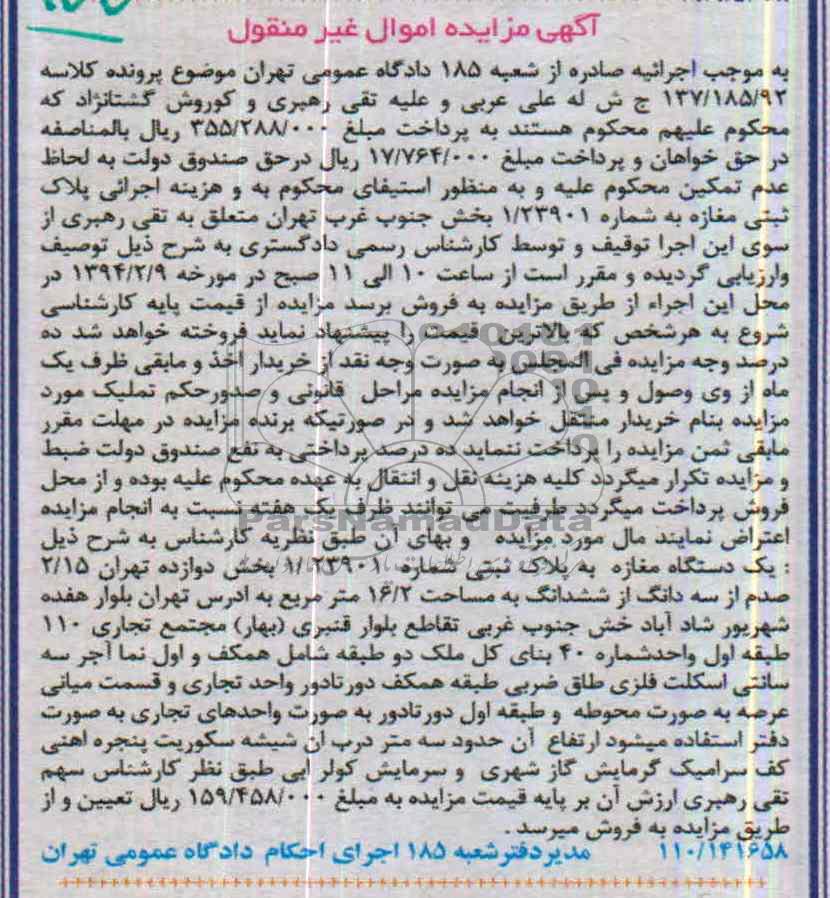 آگهی مزایده اموال غیر منقول
به موجب اجرائیه صادره از شعبه ۱۸۵ دادگاه عمومی تهران موضوع پرونده کلاسه
۱۳۷/۱۸۵/۹۲ ج ش له علی عربی و علیه تقی رهبری و کوروش گشتانژاد که
محکوم علیهم محکوم هستند به پرداخت مبلغ ۳۵۵/۲۸۸/۰۰۰ ریال بالمناصفه
در حق خواهان و پرداخت مبلغ ۱۷/۷۶۴/۰۰۰ ریال درحق صندوق دولت به لحاظ
عدم تمکین محکوم علیه و به منظور استیفای محکوم به و هزینه اجرائی پلاک
ثبتی مغازه به شماره ۱/۲۳۹۰۱ بخش جنوب غرب تهران متعلق به تقی رهبری از
سوی این اجرا توقیف و توسط کارشناس رسمی دادگستری به شرح ذیل توصیف
وارزیابی گردیده و مقرر است از ساعت ۱۰ الی ۱۱ صبح در مورخه ۱۳۹۴/۲/۹ در
محل این اجراء از طریق مزایده به فروش برسد مزایده از قیمت پایه کارشناسی
شروع به هرشخص که بالاترین قیمت را پیشنهاد نماید فروخته خواهد شد ده
درصد وجه مزایده فی المجلس به صورت وجه نقد از خریدار اخذ و مابقی ظرف یک
ماه از وی وصول و پس از انجام مزایده مراحل قانونی و صدورحکم تملیک مورد
مزایده بنام خریدار منتقل خواهد شد و در صورتیکه برنده مزایده در مهلت مقرر
مابقی ثمن مزایده را پرداخت ننماید ده درصد پرداختی به نفع صندوق دولت ضبط
و مزایده تکرار میگردد کلیه هزینه نقل و انتقال به عهده محکوم علیه بوده و از محل
فروش پرداخت میگردد طرفیت می توانند ظرف یک هفته نسبت به انجام مزایده
اعتراض نمایند مال مورد مزایده و بهای آن طبق نظریه کارشناس به شرح ذیل
: یک دستگاه مغازه به پلاک ثبتی شماره ۱/۲۳۹۰۱ بخش دوازده تهران ۲/۱۵
صدم از سه دانگ از ششدانگ به مساحت ۱۶/۲ متر مربع به ادرس تهران بلوار هفده
شهریور شاد آباد خش جنوب غربی تقاطع بلوار قنبری (بهار) مجتمع تجاری ۱۱۰
طبقه اول واحدشماره ۴۰ بنای کل ملک دو طبقه شامل همکف و اول نما آجر سه
سانتی اسکلت فلزی طاق ضربی طبقه همکف دورتادور واحد تجاری و قسمت میانی
عرصه به صورت محوطه و طبقه اول دورتادور به صورت واحدهای تجاری به صورت
دفتر استفاده میشود ارتفاع آن حدود سه متر درب ان شیشه سکوریت پنجره اهنی
کف سرامیک گرمایش گاز شهری و سرمایش کولر ابی طبق نظر کارشناس سهم
تقی رهبری ارزش آن بر پایه قیمت مزایده به مبلغ ۱۵۹/۴۵۸/۰۰۰ ریال تعیین و از
طریق مزایده به فروش میرسد .
۱۱۰/۱۴۱۶۵۸ مدیردفترشعبه ۱۸۵ اجرای احکام دادگاه عمومی تهران
ParsNamadData